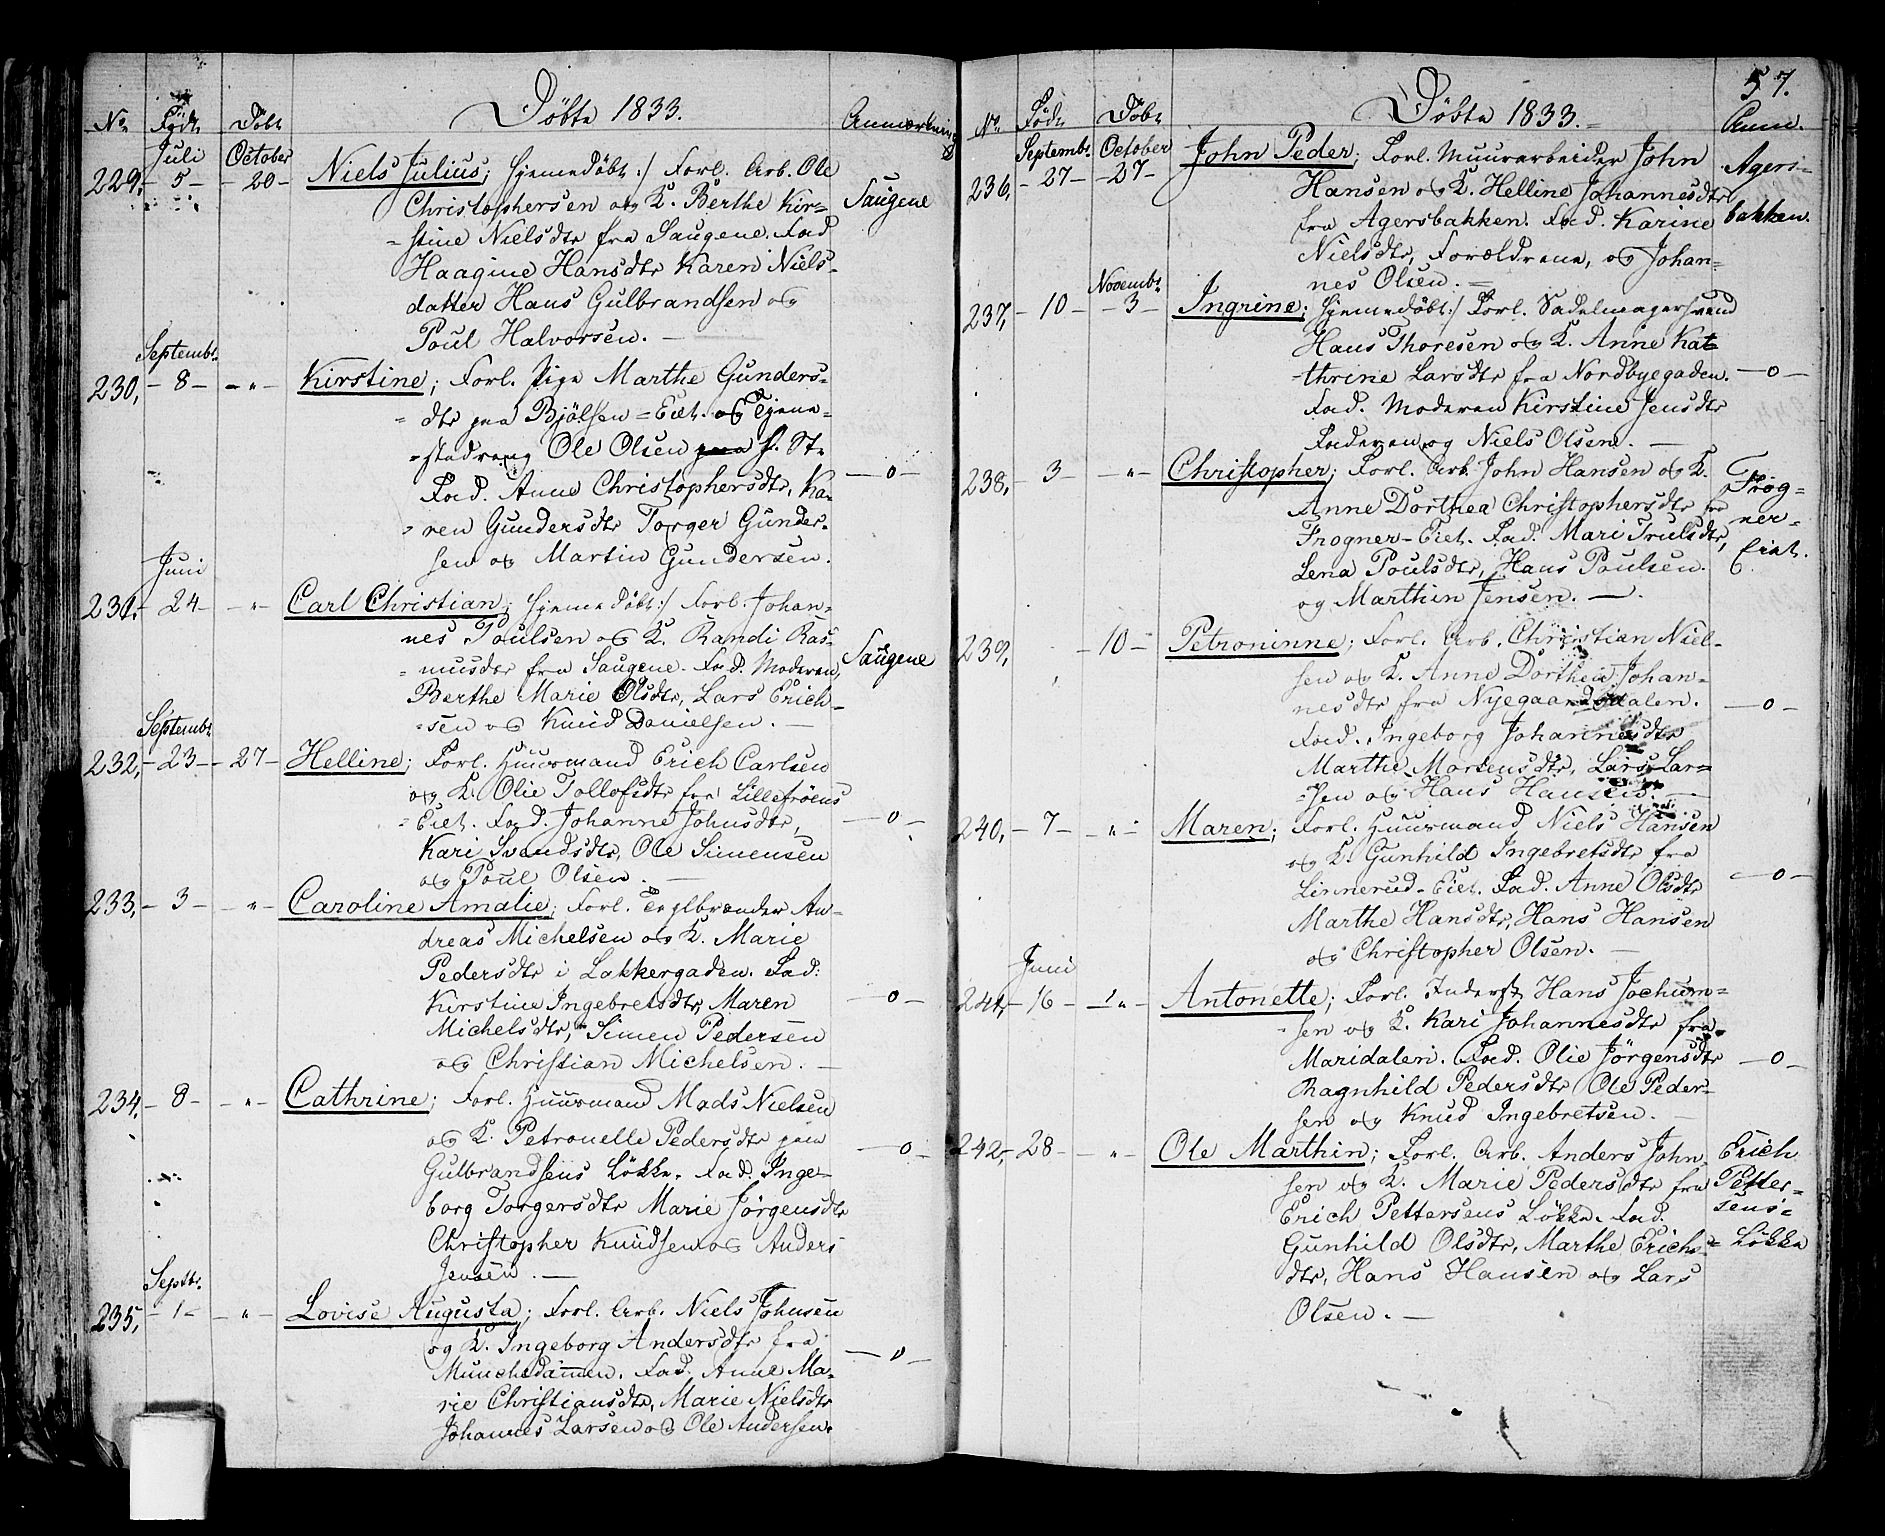 Döbte 1833.
No Födt Döbt Anmærkning
Juli October
229, - 5 - - 20 - Niels Julius; hjemedöbt :/ Forl. Arb. Ole
Christophersen og K. Berthe Kir= Saugene
=stine Nielsdtr fra Saugene. Fad
Haagine Hansdtr Karen Niels-
datter Hans Gulbrandsen og
Poul Halvorsen. —
Septembr.
230, - 8 - - " - Kirstine; Forl. Pige Marthe Gunders=
=dtr paa Bjölsen=Eiet. og Tjene=
=stedreng Ole Olsen paa St.
Fad. Anne Christophersdtr, Ka- —o—
=ren Gundersdtr Torger Gunder-
sen og Martin Gundersen.
Juni
231. - 24 - - " - Carl Christian; hjemedöbt :/ Forl. Johan-
nes Poulsen og K. Randi Ras=
=musdtr fra Saugene. Fad. Moderen, Saugene
Berthe Marie Olsdtr, Lars Erich-
=sen og Knud Danielsen. —
Septembr
232, - 23 - - 27 - Helline; Forl. Huusmand Erich Carlsen
og K. Olie Tollofsdtr fra Lillefröens
=Eiet. Fad. Johanne Johnsdtr, —o—
Kari Svendsdtr, Ole Simensen
og Poul Olsen. —
233, - 3 - - " - Caroline Amalie; Forl. Teglbrænder An-
dreas Michelsen og K. Marie
Pedersdtr i Lakkergaden. Fad:
Kirstine Ingebretsdtr, Maren —o—
Michelsdtr, Simen Pedersen
og Christian Michelsen. —
234, - 8 - - " - Cathrine; Forl. Huusmand Mads Nielsen
og K. Petronelle Pedersdtr paa —o—
Gulbrandsens Lökke. Fad. Inge-
borg Torgersdtr Marie Jörgensdtr
Christopher Knudsen og Anders
Jensen. —
Septbr.
235, - 1 - - " - Lovise Augusta; Forl. Arb. Niels Johnsen
og K. Ingeborg Andersdtr fra
Munchedammen. Fad. Anne Ma- —o—
rie Christiansdtr, Marie Nielsdtr
Johannes Larsen og Ole Andersen.
57.
Döbte 1833.
No Födt Döbt Anm.
Septembr October
236, - 27 - - 27 - John Peder; Forl. Muurarbeider John Agers-
Hansen og K. Helline Johannesdtr bakken.
fra Agersbakken. Fad. Karine
Nielsdtr, Forældrene, og Johan=
nes Olsen. —
Novembr
237, - 10 - - 3 - Ingrine; hjemedöbt :/ Forl. Sadelmagersvend
Hans Thoresen og K. Anne Kat
=thrine Larsdtr fra Nordbyegaden. —o—
Fad. Moderen Kirstine Jensdtr
Faderen og Niels Olsen. —
238, - 3 - - " - Christopher; Forl. Arb. John Hansen og K. Frog=
Anne Dorthea Christophersdtr fra ner-
Frogner-Eiet. Fad. Mari Trulsdtr, Eiet.
Lena Poulsdtr, Hans Poulsen.
og Marthin Jensen. —
239, - 10 - Petroninne; Forl. Arb. Christian Niel-
sen og K. Anne Dorthea Johan=
nesdtr fra Nyegaardsdalen. —o—
Fad. Ingeborg Johannesdtr
Marthe Mortensdtr, Lars Lar=
=sen og Hans Hansen. —
240, - 7 - - " - Maren; Forl. Huusmand Niels Hansen
og K. Gunhild Ingebretsdtr fra
Linnerud-Eiet. Fad. Anne Olsdtr —o—
Marthe Hansdtr, Hans Hansen
og Christopher Olsen. —
Juni
241, - 16 - - " - Antonette; Forl. Inderst Hans Jochum=
sen og K. Kari Johannesdtr fra
Maridalen. Fad. Olie Jörgensdtr —o—
Ragnhild Pedersdtr Ole Peder-
sen og Knud Ingebretsen. —
242, - 28 - - " - Ole Marthin; Forl. Arb. Anders John- Erich
sen og K. Marie Pedersdtr fra Petter=
Erich Pettersens Lökke. Fad. sens=
Gunhild Olsdtr, Marthe Erichs= Lökke
dtr, Hans Hansen og Lars
Olsen. —